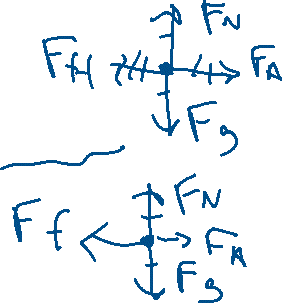 FN
Ff FA
Fg
FN
Ff FA
Fg